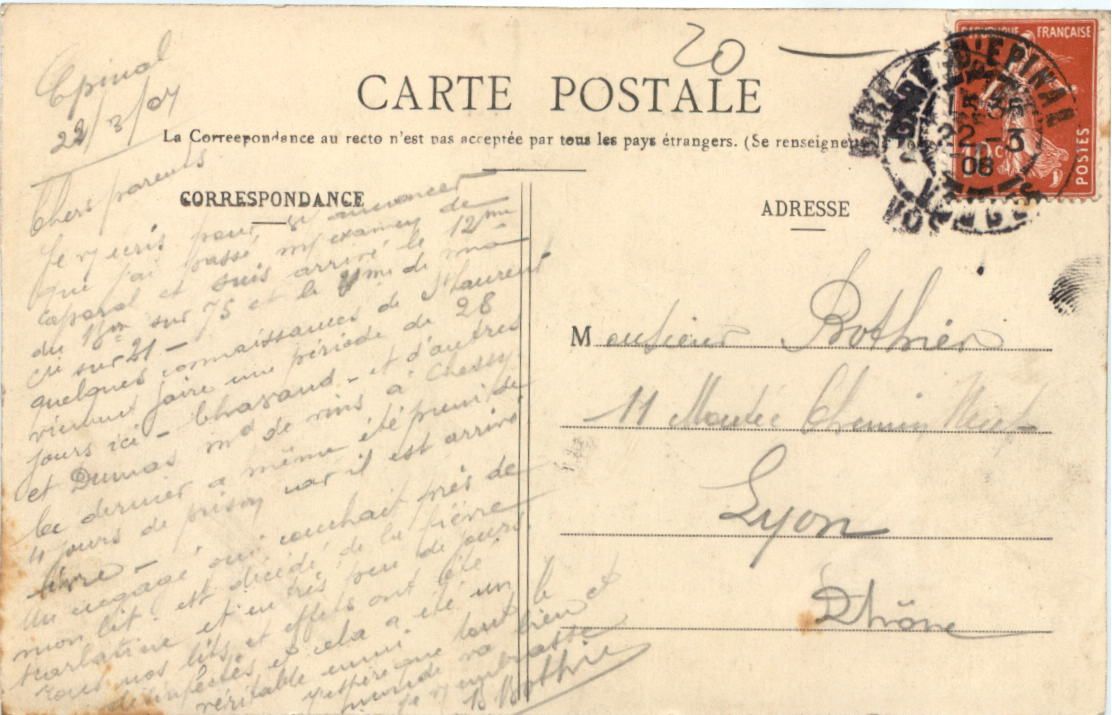 20
CARTE POSTALE
La Correspondance au recto n'est pas acceptée par tous les pays étrangers. (Se renseigner
CORRESPONDANCE
ADRESSE
RÉPUBLIQUE FRANÇAISE
10 c
POSTES
GARE D'EPINAL
22 - 3
08
VOSGES
Epinal
22/3/07
Chers parents
Je vs écris pour vs annoncer
que j'ai passé mes examens de
caporal et suis arrivé le 12me
du sur 75 et le de ma
Cie sur 21 -
quelques connaissances de St Laurent
viennent faire une période de 28
jours ici - Chavand - et d'autres
et Dumas md de vins à Chessy.
Ce dernier a même été puni de
4 jours de prison car il est arrivé
ivre -
Un engagé qui couchait près de
mon lit est décédé de la fièvre
scarlatine et en très peu de jours
tous nos lits et effets ont été
désinfectés et cela a été un
véritable ennui
J'espère que tout le
monde va bien et
je vs embrasse
B Bothier
Monsieur Bothier
11 Montée Chemin Neuf
Lyon
Rhône